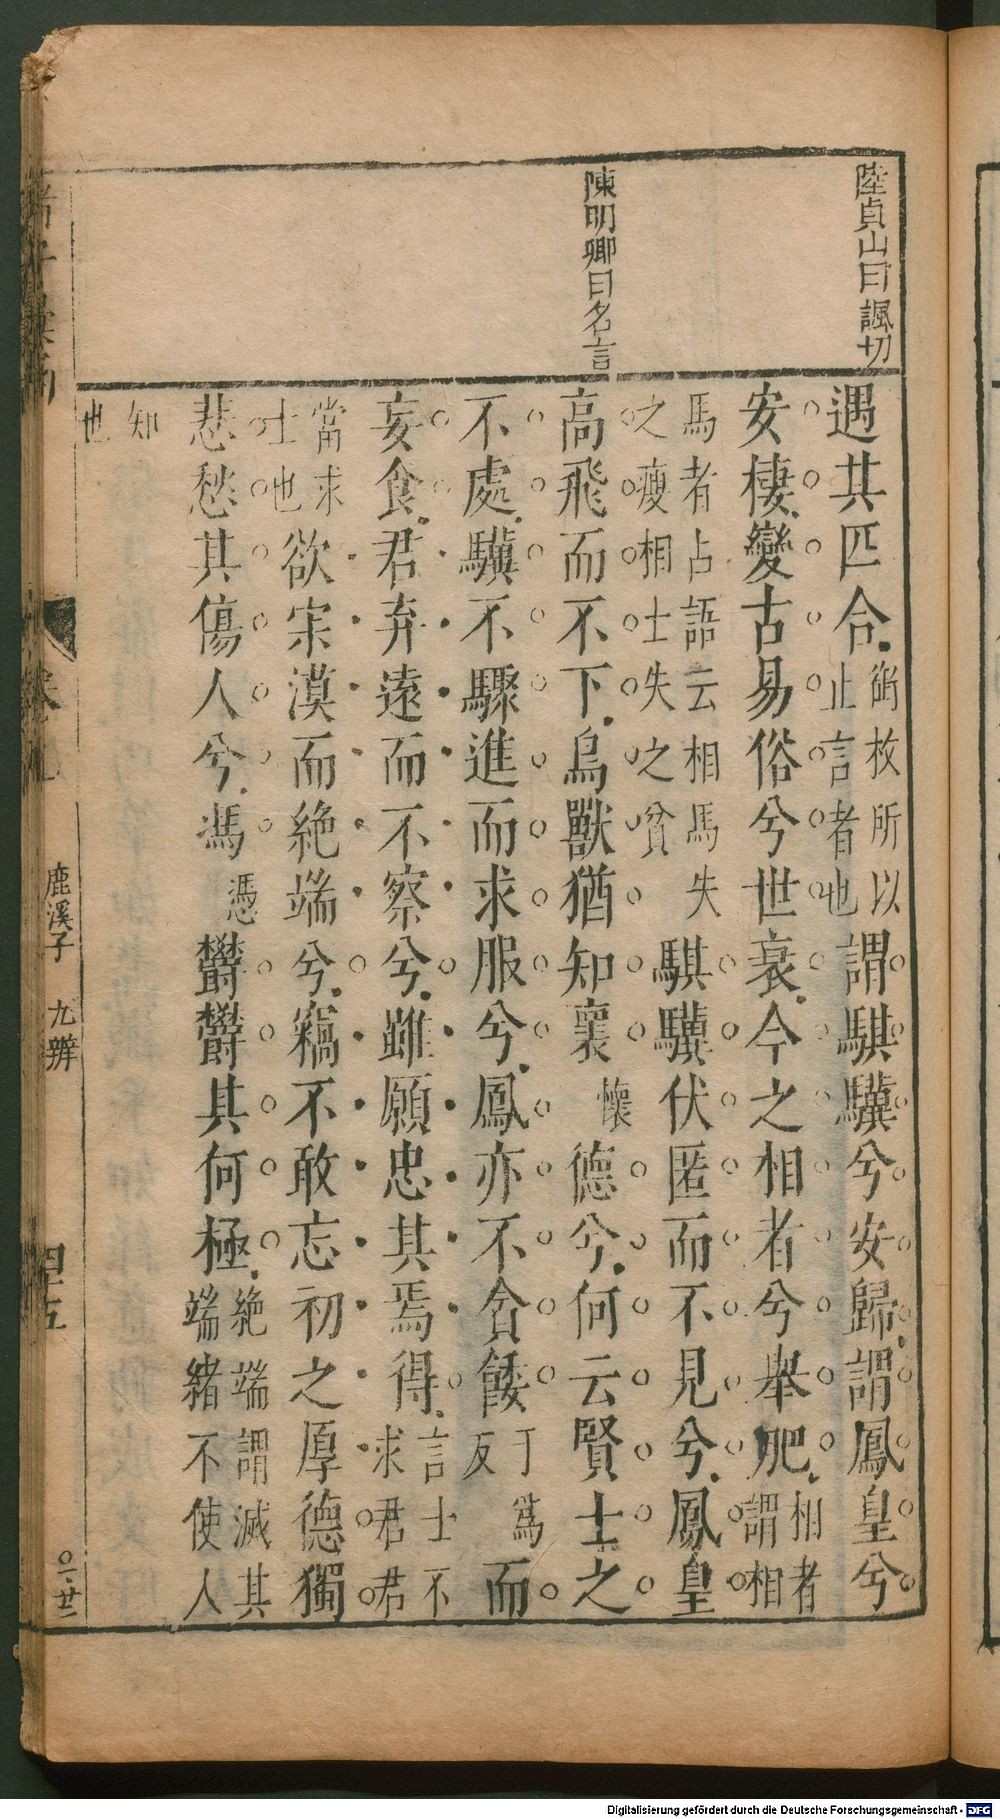 陸貞山曰諷切
陳明卿曰名言
遇其匹合銜枚所以止言者也謂騏驥兮安歸謂鳳皇兮
安棲變古易俗兮世衰今之相者兮舉肥相者謂相
馬者占語云相馬失之瘦相士失之貧騏驥伏匿而不見兮鳳皇
高飛而不下鳥獸猶知褱懷德兮何云賢士之
不處驥不驟進而求服兮鳳亦不貪餧于僞反而
妄食君弃遠而不察兮雖願忠其焉得言士不求君君
當求士也欲宋漠而絶端兮竊不敢忘初之厚德獨
悲愁其傷人兮馮憑鬱鬱其何極絶端謂滅其端緒不使人
知也
卷
鹿溪子 九辨
四五
〇廿二
Digitalisierung gefördert durch die Deutsche Forschungsgemeinschaft - DFG